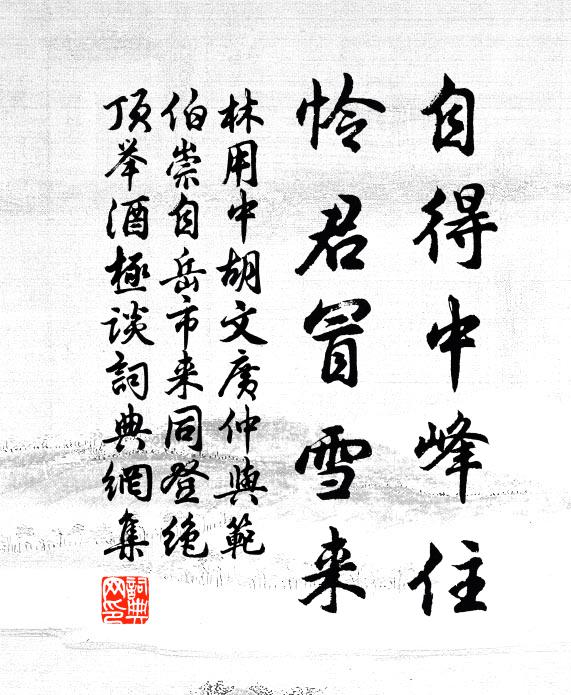 自得中峰住
怜君冒雪来
林用中胡文廣仲與範
伯崇自岳市来同登绝
顶举酒極谈詞典網集
詞典网印